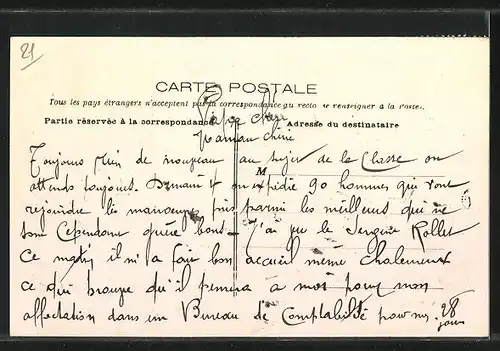 21
CARTE POSTALE
Tous les pays étrangers n'acceptent pas la correspondance au recto se renseigner à la Poste.
Partie réservée à la correspondance
Adresse du destinataire
chère
maman chérie
M
Toujours rien de nouveau au sujet de la Classe on
attends toujours. Demain on expédie 90 hommes qui vont
rejoindre les manoeuvres pris parmi les meilleurs qui ne
sont cependant guère bons. J'ai vu le Sergent Rollet
Ce matin il m'a fait bon accueil même chaleureux
ce qui prouve qu'il pensera à moi pour mon
affectation dans un Bureau de Comptabilité pour mes 28
jours